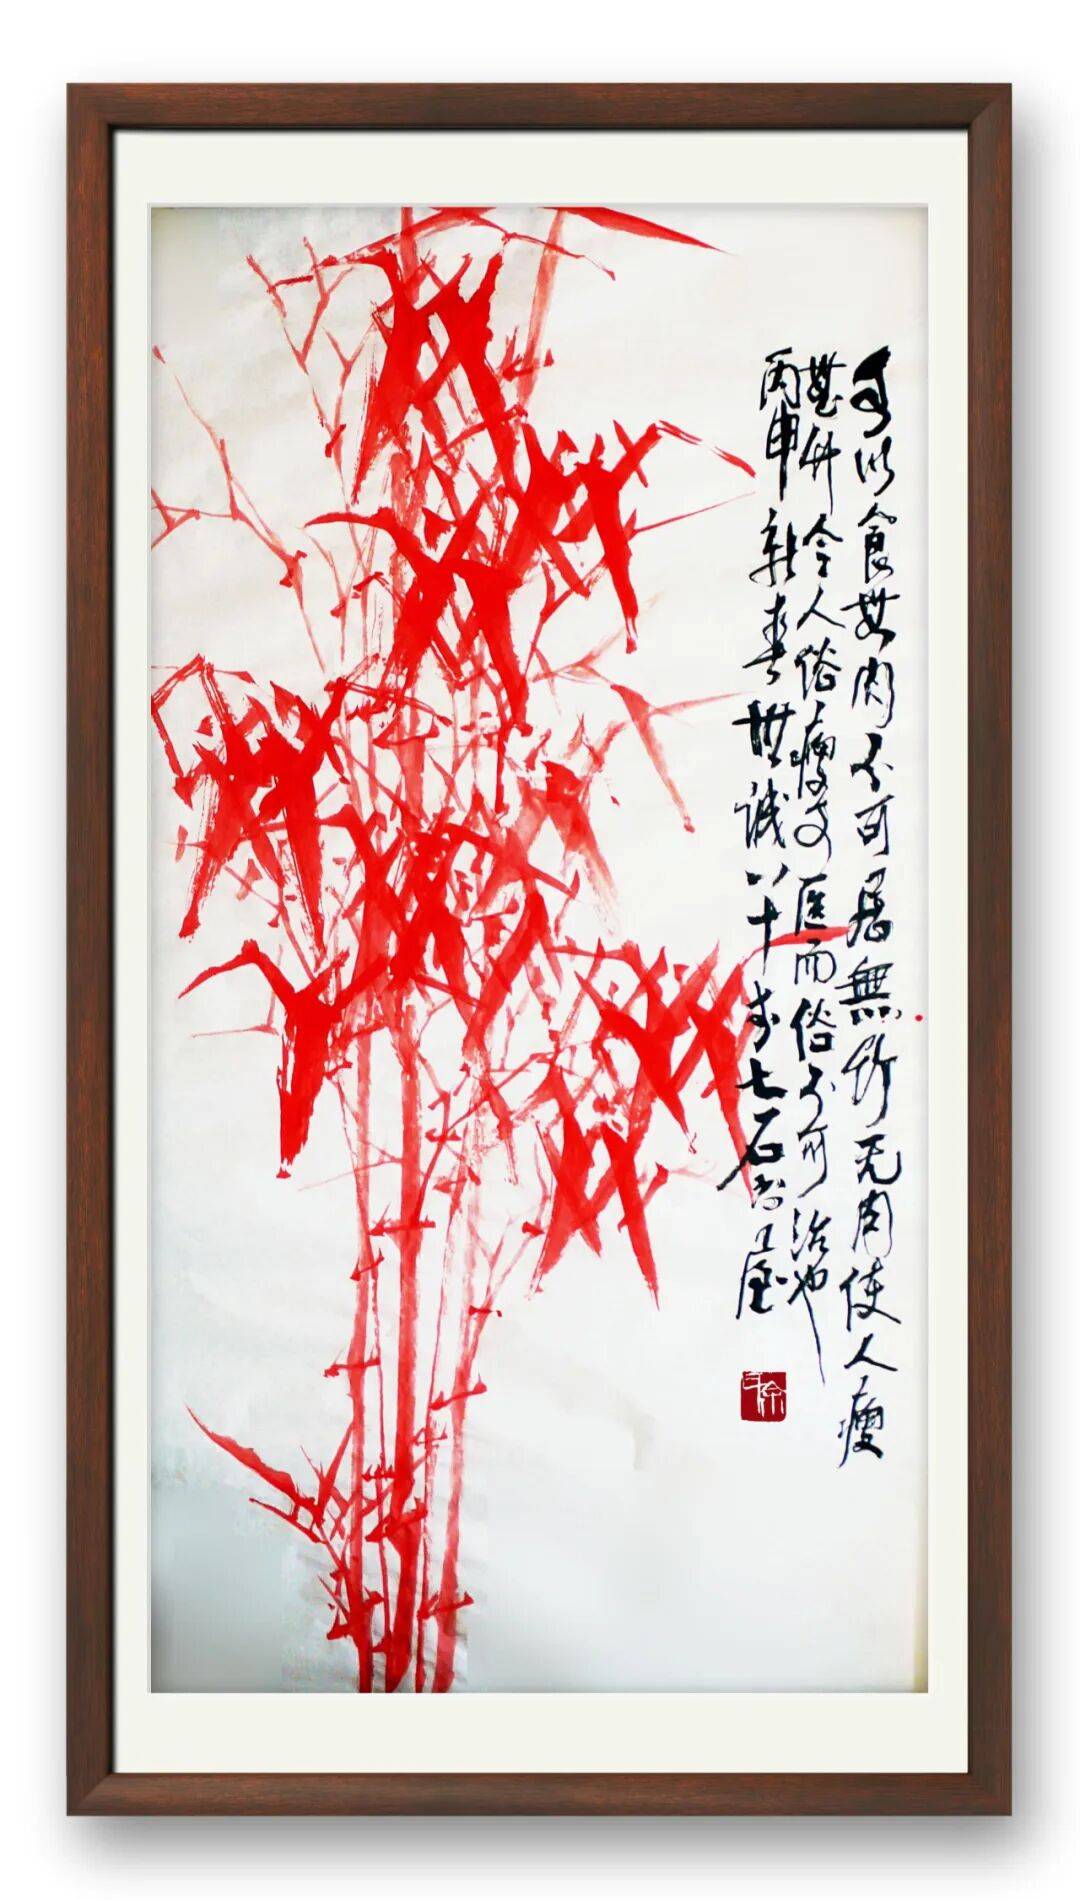 可以食無肉不可居無竹无肉使人瘦
無竹令人俗瘦可医而俗不可治也
丙申新春世诚八十七石书屋